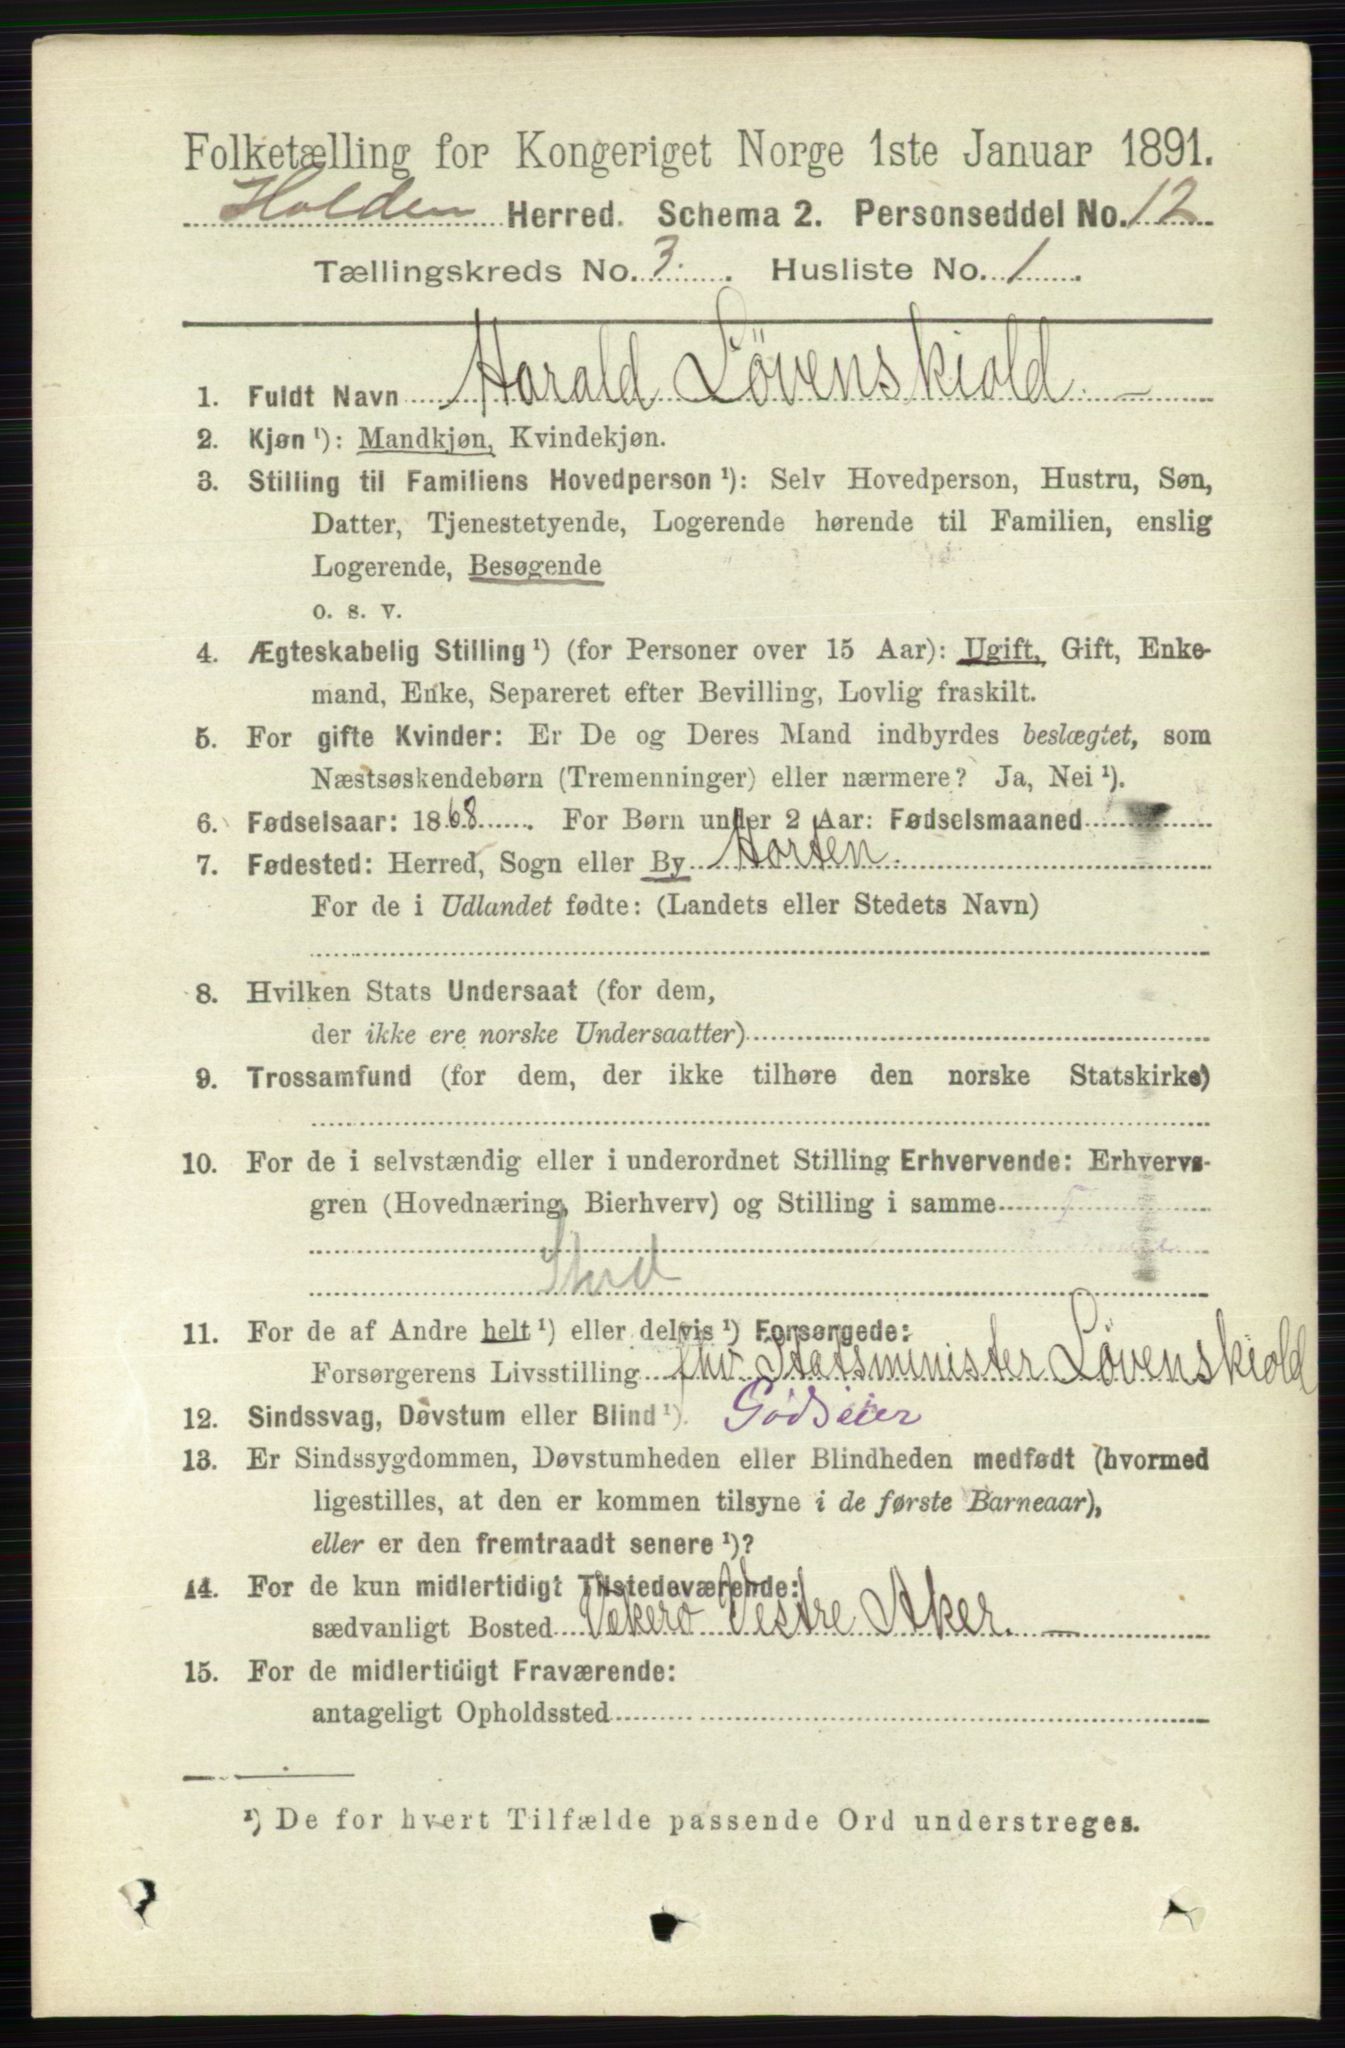 Folketælling for Kongeriget Norge 1ste Januar 1891.
Holden Herred. Schema 2. Personseddel No. 12
Tællingskreds No. 3. Husliste No. 1
1. Fuldt Navn Harald Løvenskiold —
2. Kjøn ¹): Mandkjøn, Kvindekjøn.
3. Stilling til Familiens Hovedperson ¹): Selv Hovedperson, Hustru, Søn,
Datter, Tjenestetyende, Logerende hørende til Familien, enslig
Logerende, Besøgende
o. s. v.
4. Ægteskabelig Stilling ¹) (for Personer over 15 Aar): Ugift, Gift, Enke-
mand, Enke, Separeret efter Bevilling, Lovlig fraskilt.
5. For gifte Kvinder: Er De og Deres Mand indbyrdes beslægtet, som
Næstsøskendebørn (Tremenninger) eller nærmere? Ja, Nei ¹).
6. Fødselsaar: 1868. For Børn under 2 Aar: Fødselsmaaned
7. Fødested: Herred, Sogn eller By Horten.
For de i Udlandet fødte: (Landets eller Stedets Navn)
8. Hvilken Stats Undersaat (for dem,
der ikke ere norske Undersaatter)
9. Trossamfund (for dem, der ikke tilhøre den norske Statskirke)
10. For de i selvstændig eller i underordnet Stilling Erhvervende: Erhvervs-
gren (Hovednæring, Bierhverv) og Stilling i samme
Stud
11. For de af Andre helt ¹) eller delvis ¹) Forsørgede:
Forsørgerens Livsstilling fhv. Statsminister Løvenskiold
12. Sindssvag, Døvstum eller Blind ¹). Godseier
13. Er Sindssygdommen, Døvstumheden eller Blindheden medfødt (hvormed
ligestilles, at den er kommen tilsyne i de første Barneaar),
eller er den fremtraadt senere ¹)?
14. For de kun midlertidigt Tilstedeværende:
sædvanligt Bosted Vækerø Vestre Aker. —
15. For de midlertidigt Fraværende:
antageligt Opholdssted
¹) De for hvert Tilfælde passende Ord understreges.